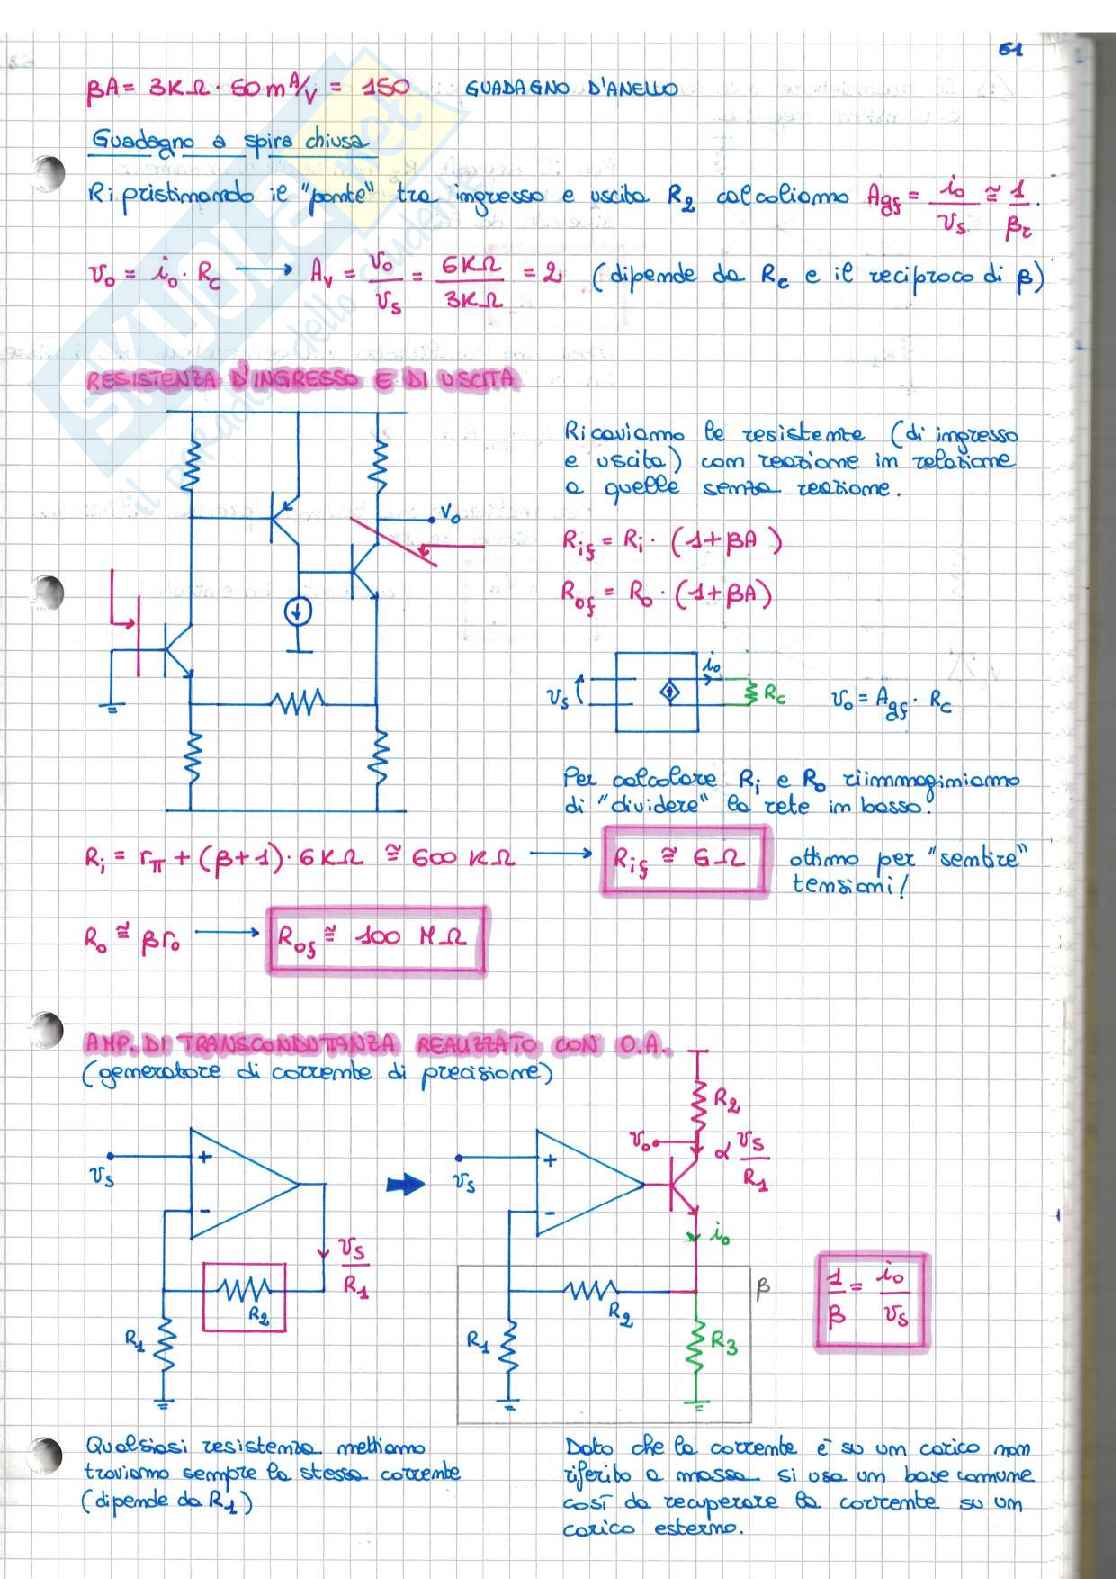 51
βA = 3KΩ · 50 mA/V = 150 GUADAGNO D'ANELLO
Guadagno a spira chiusa
Ripristinando il "ponte" tra ingresso e uscita R2 calcoliamo Agf = io/vs ≅ 1/βr.
vo = io · Rc → Av = vo/vs = 6KΩ/3KΩ = 2 (dipende da Rc e il reciproco di β)
RESISTENZA D'INGRESSO E DI USCITA
Ricaviamo le resistenze (di ingresso
e uscita) con reazione in relazione
a quelle senza reazione.
Vo
Rif = Ri · (1+βA)
Rof = Ro · (1+βA)
vs io Rc vo = Agf · Rc
Per calcolare Ri e Ro riimmaginiamo
di "dividere" la rete in basso:
Ri = rπ + (β+1) · 6KΩ ≅ 600 KΩ → Rif ≅ 6 Ω ottimo per "sentire"
tensioni!
Ro ≅ βro → Rof ≅ 100 MΩ
AMP. DI TRANSCONDUTANZA REALIZZATO CON O.A.
(generatore di corrente di precisione)
R2
vo α vs/R1
vs + - vs/R1 R2 R1
vs + - io R2 R1 R3 β
1/β = io/vs
Qualsiasi resistenza mettiamo
troviamo sempre la stessa corrente
(dipende da R1)
Dato che la corrente è su un carico non
riferito a massa si usa un base comune
così da recuperare la corrente su un
carico esterno.
SKUOLA.net